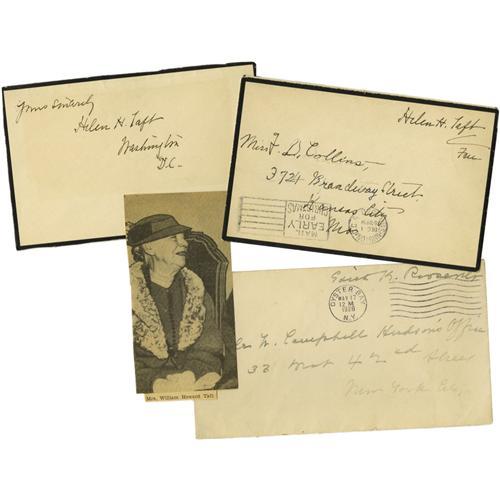 Yours Sincerely
Helen H. Taft
Washington
D.C.
Helen H. Taft
Free
Miss F. D. Collins,
3724 Broadway Street,
Kansas City
Mo.
MAIL
EARLY
FOR
CHRISTMAS
Mrs. William Howard Taft
Edith K. Roosevelt
OYSTER BAY
MAY 17
12 M
1928
N.Y.
W. Campbell Hudson's Office
33 West 42nd Street
New York City